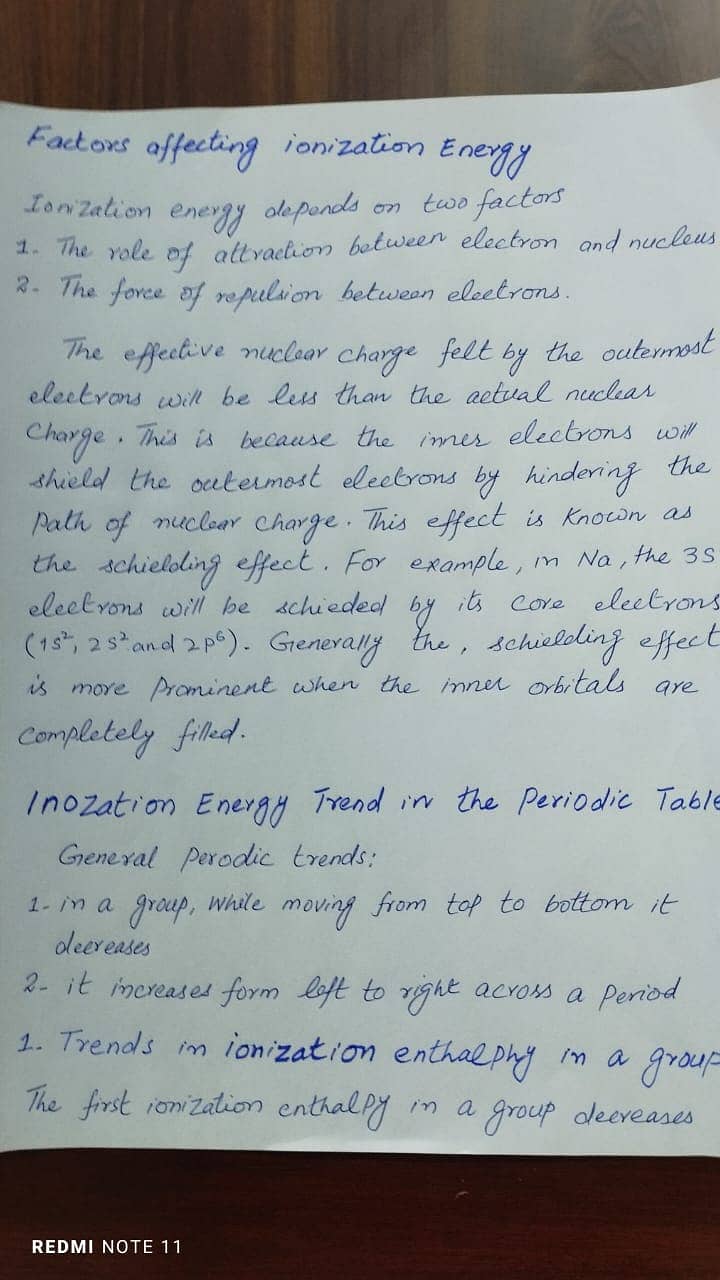 Factors affecting ionization Energy
Ionization energy depends on two factors
1. The role of attraction between electron and nucleus
2. The force of repulsion between electrons.
The effective nuclear charge felt by the outermost
electrons will be less than the actual nuclear
Charge. This is because the inner electrons will
shield the outermost electrons by hindering the
Path of nuclear charge. This effect is Known as
the schielding effect. For example, in Na, the 3S
electrons will be schieded by its core electrons
(1s², 2s² and 2p⁶). Generally the, schielding effect
is more Prominent when the inner orbitals are
Completely filled.
Inozation Energy Trend in the Periodic Table
General Perodic trends:
1- in a group, While moving from top to bottom it
decreases
2- it increases form left to right across a Period
1. Trends in ionization enthalphy in a group
The first ionization enthalpy in a group decreases
REDMI NOTE 11